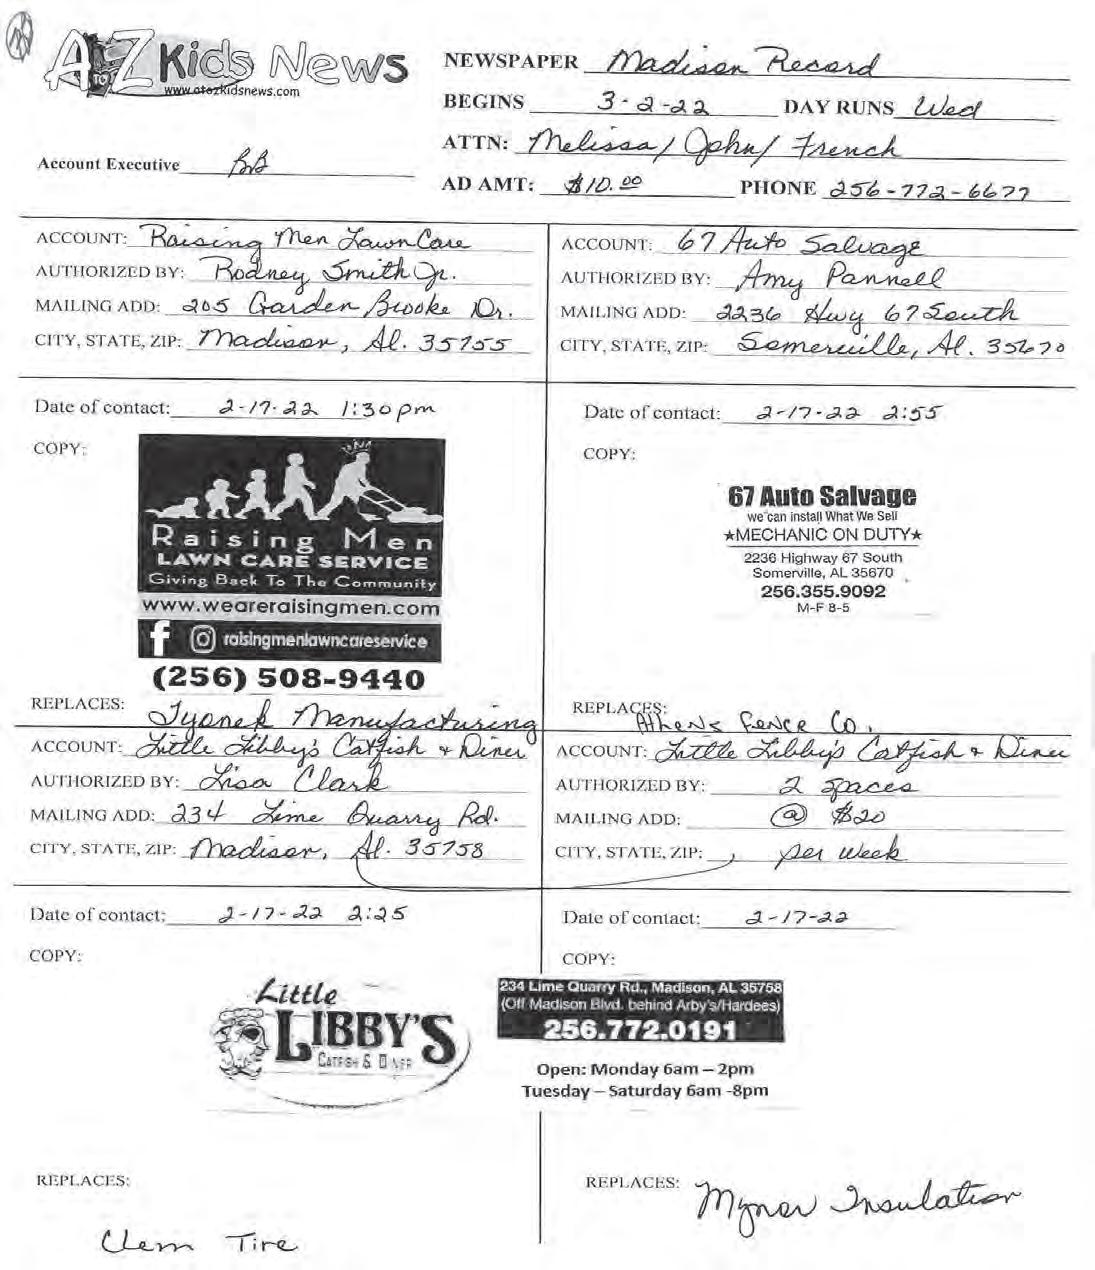 A TO Z Kids News
www.atozkidsnews.com
Account Executive BB
NEWSPAPER Madison Record
BEGINS 3-2-22 DAY RUNS Wed
ATTN: Melissa / John / French
AD AMT: $10.00 PHONE 256-772-6677
ACCOUNT: Raising Men Lawn Care
AUTHORIZED BY: Rodney Smith Jr.
MAILING ADD: 205 Garden Brooke Dr.
CITY, STATE, ZIP: Madison, Al. 35755
Date of contact: 2-17-22 1:30pm
COPY:
Raising Men
LAWN CARE SERVICE
Giving Back To The Community
www.weareraisingmen.com
f raisingmenlawncareservice
(256) 508-9440
REPLACES:
Tyonek Manufacturing
ACCOUNT: 67 Auto Salvage
AUTHORIZED BY: Amy Pannell
MAILING ADD: 2236 Hwy 67 South
CITY, STATE, ZIP: Somerville, Al. 35670
Date of contact: 2-17-22 2:55
COPY:
67 Auto Salvage
we can install What We Sell
★MECHANIC ON DUTY★
2236 Highway 67 South
Somerville, AL 35670
256.355.9092
M-F 8-5
REPLACES:
Athens Fence Co.
ACCOUNT: Little Libby's Catfish + Diner
AUTHORIZED BY: Lisa Clark
MAILING ADD: 234 Lime Quarry Rd.
CITY, STATE, ZIP: Madison, Al. 35758
Date of contact: 2-17-22 2:25
COPY:
Little
LIBBY'S
CATFISH & DINER
REPLACES:
Clem Tire
ACCOUNT: Little Libby's Catfish + Diner
AUTHORIZED BY: 2 spaces
MAILING ADD: @ $20
CITY, STATE, ZIP: per week
Date of contact: 2-17-22
COPY:
234 Lime Quarry Rd., Madison, AL 35758
(Off Madison Blvd. behind Arby's/Hardees)
256.772.0191
Open: Monday 6am – 2pm
Tuesday – Saturday 6am -8pm
REPLACES: Mynor Insulation